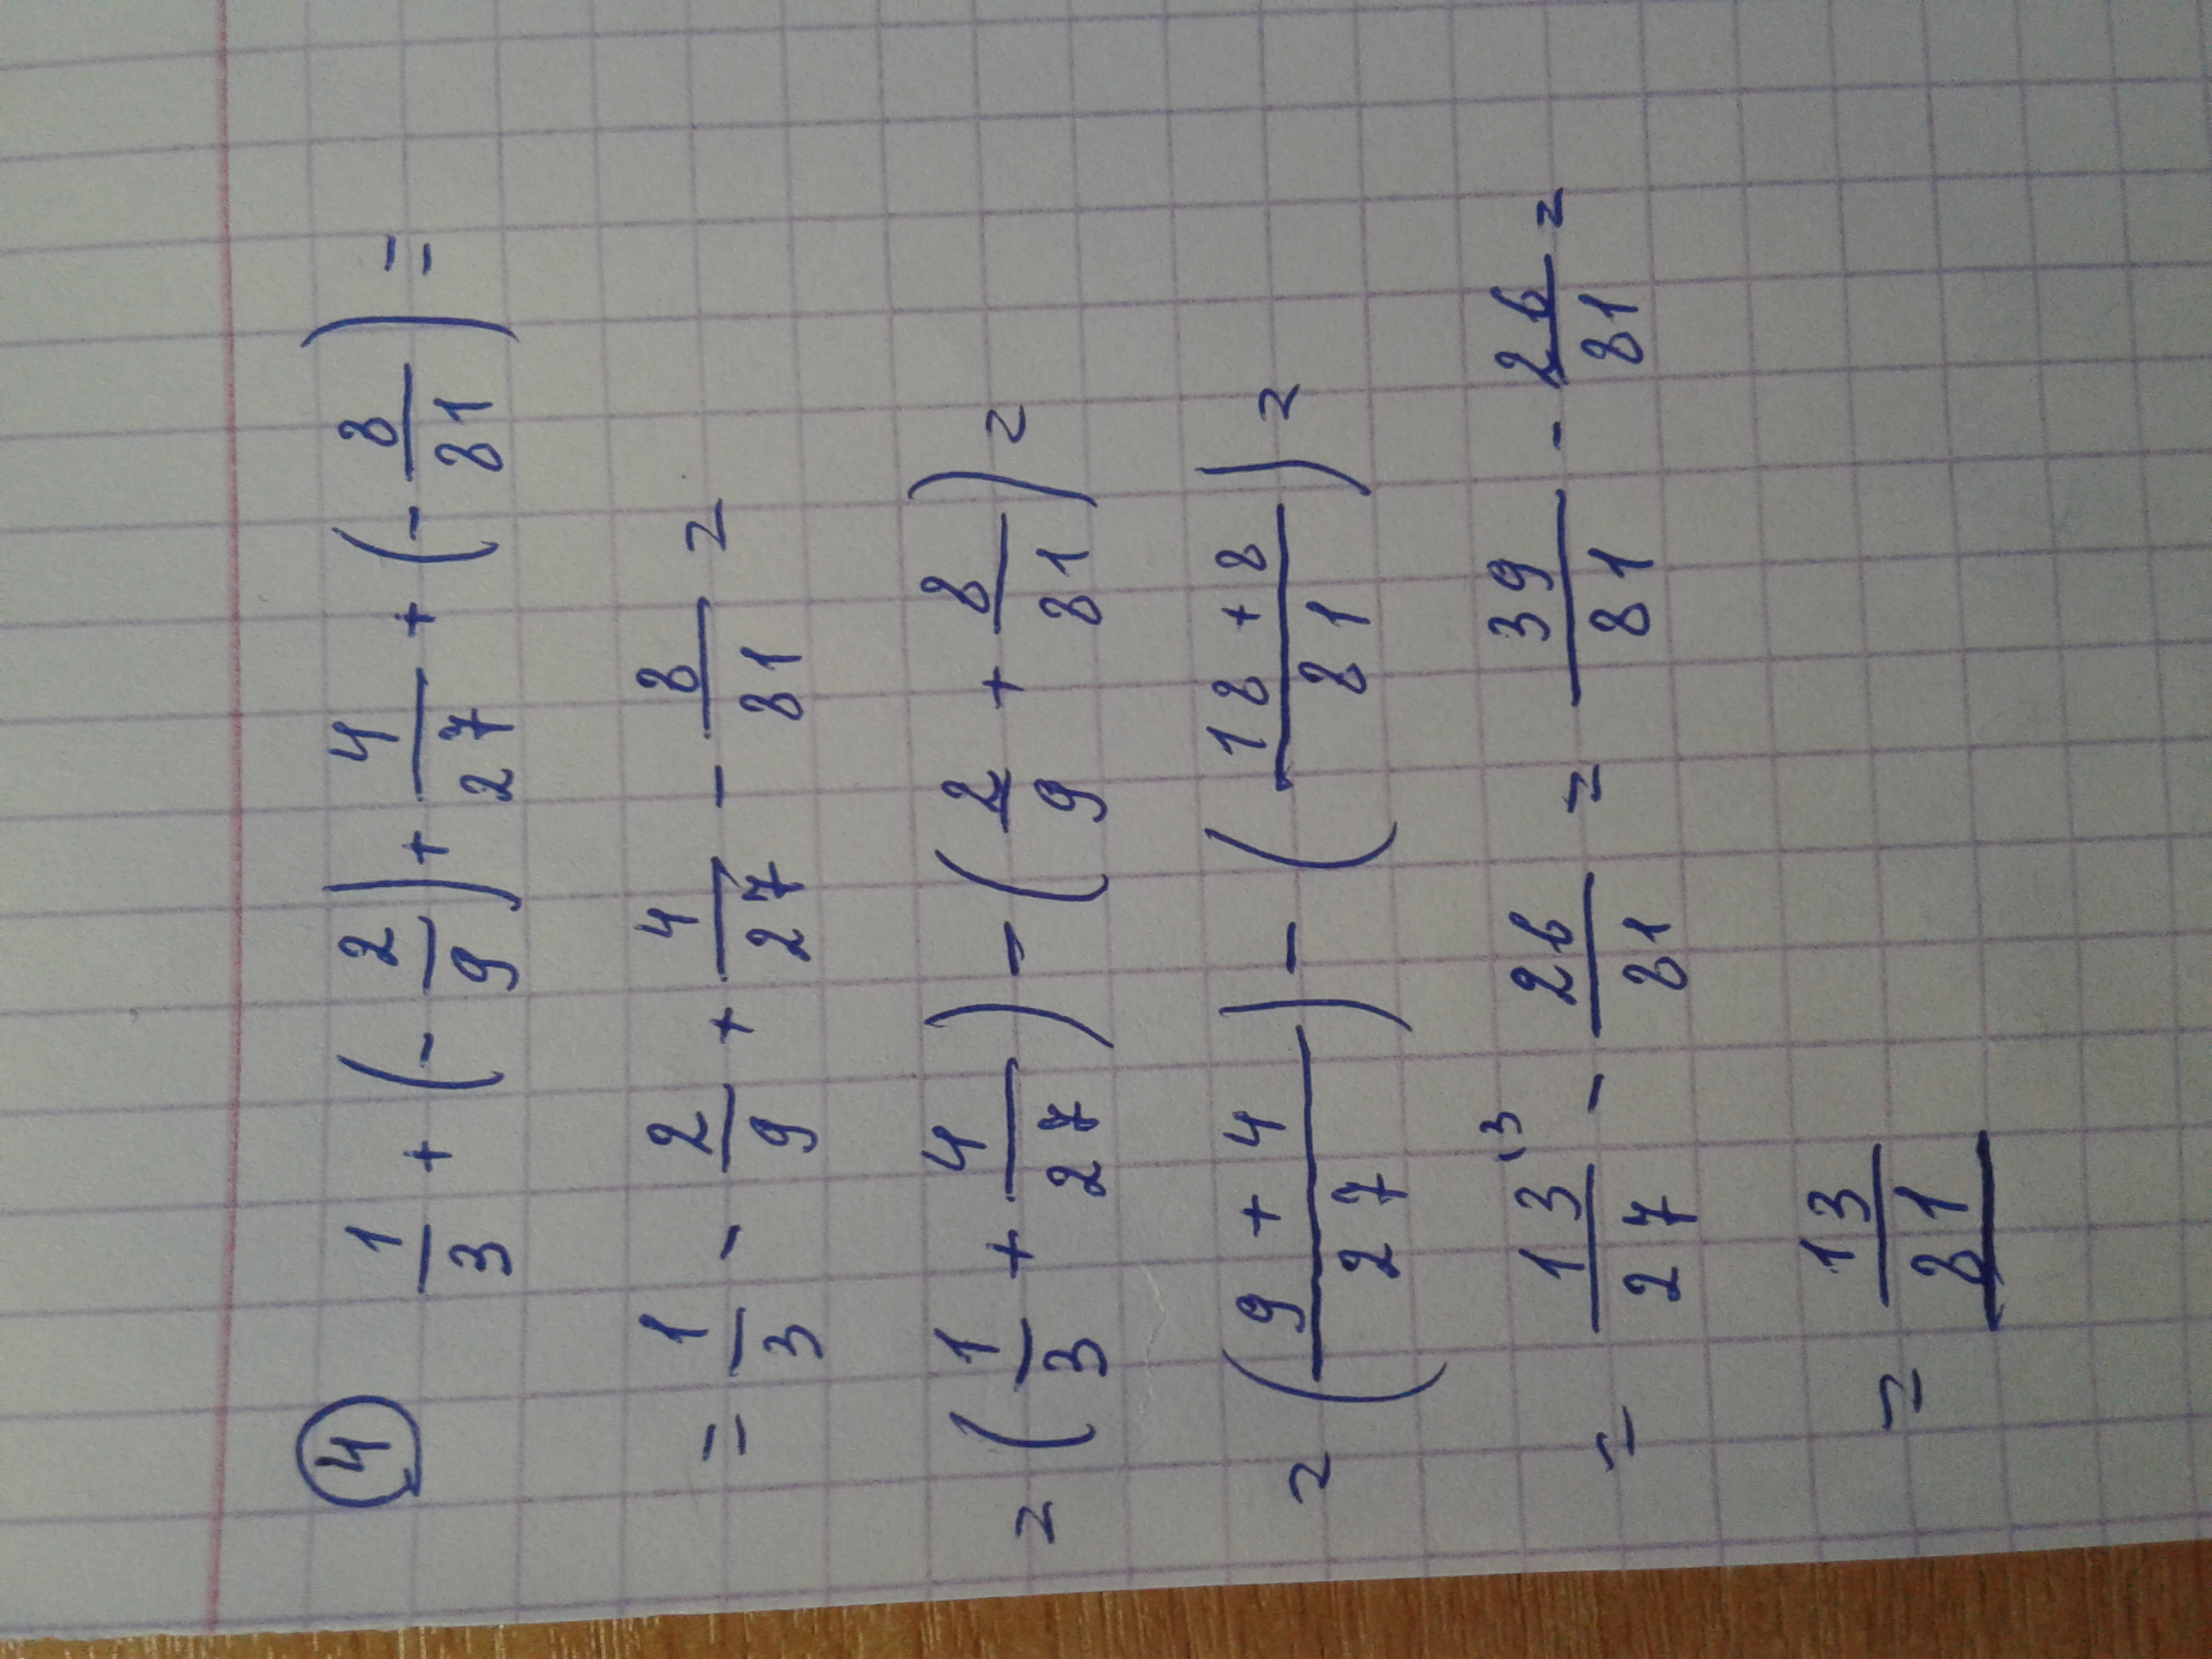 ④ 1/3 + (-2/9) + 4/27 + (-8/81) =
= 1/3 - 2/9 + 4/27 - 8/81 =
= (1/3 + 4/27) - (2/9 + 8/81) =
= ((9 + 4)/27) - ((18 + 8)/81) =
= 13/27 ⁽³ - 26/81 = 39/81 - 26/81 =
= 13/81